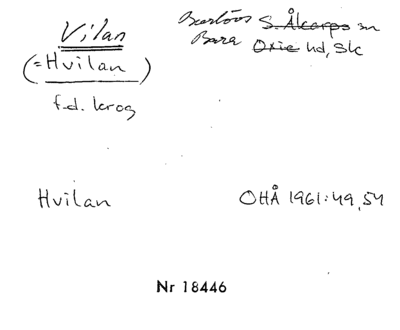 Vilan
(=Hvilan)
f.d. krog
Burlövs S. Åkarps sn
Bara Oxie hd, Sk
Hvilan
OHÅ 1961:49,54
Nr 18446